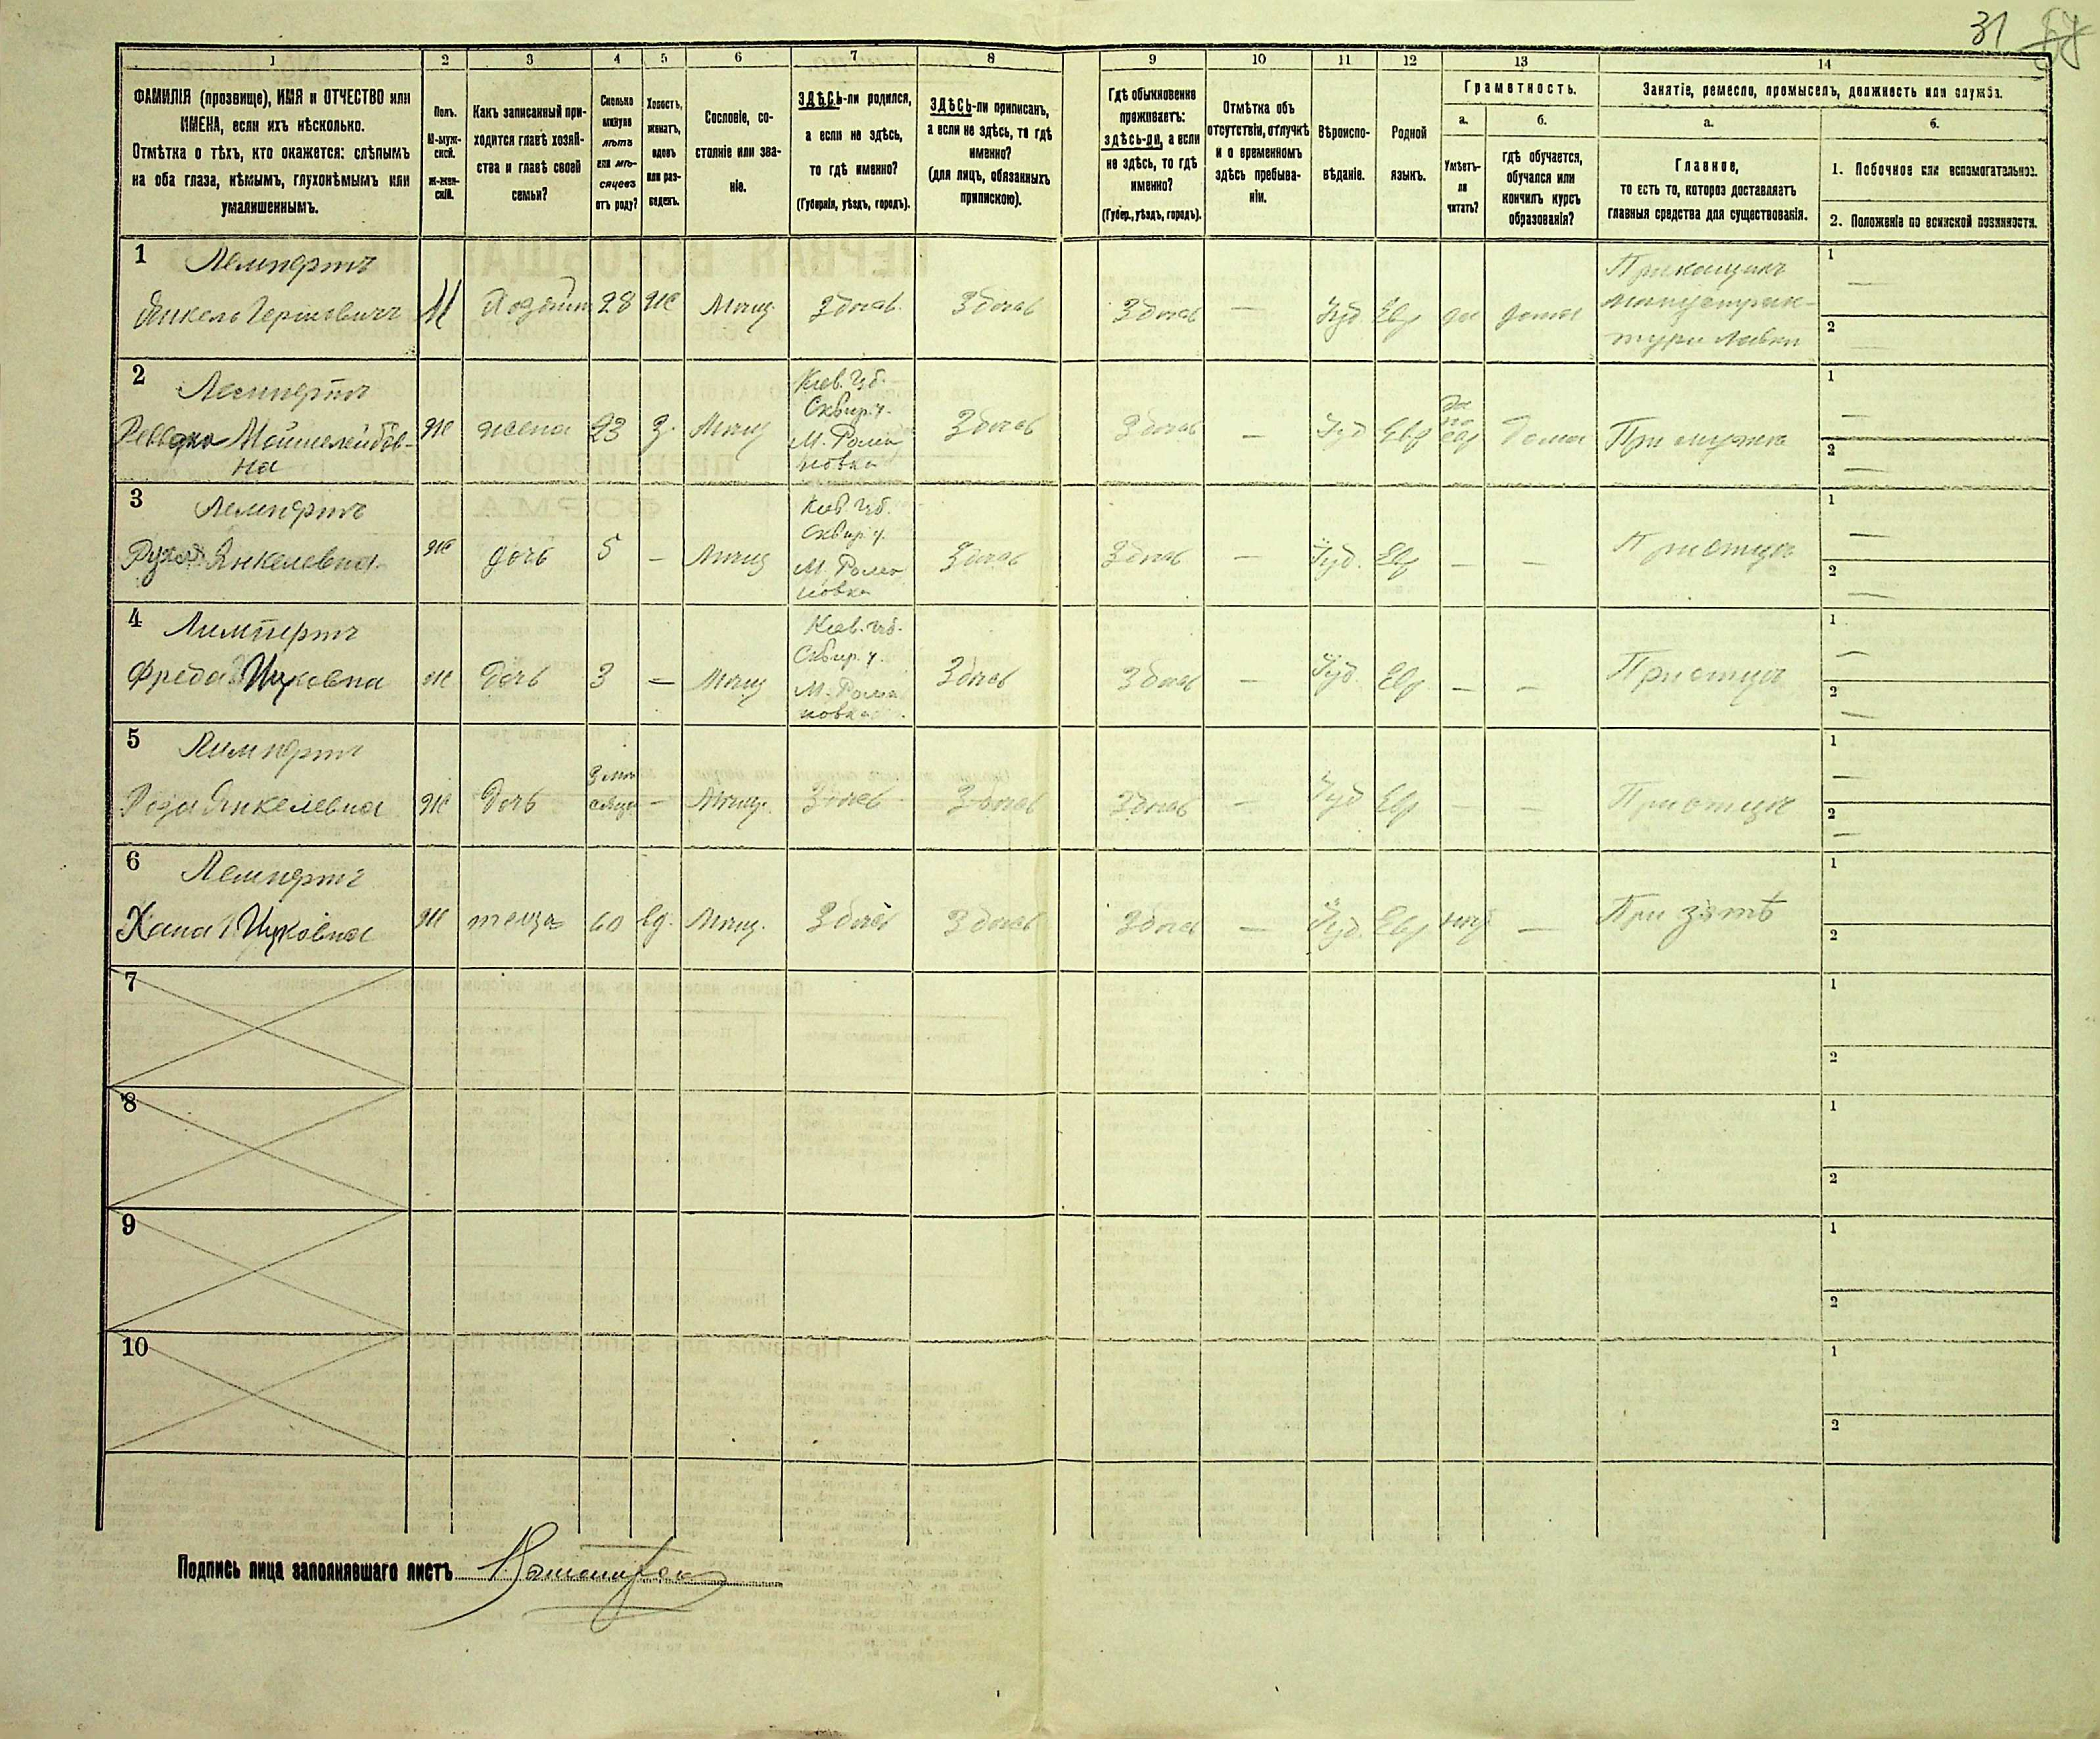 31
1 2 3 4 5 6 7 8 9 10 11 12 13 14
ФАМИЛІЯ (прозвище), ИМЯ и ОТЧЕСТВО или
ИМЕНА, если ихъ нѣсколько.
Отмѣтка о тѣхъ, кто окажется: слѣпымъ
на оба глаза, нѣмымъ, глухонѣмымъ или
умалишеннымъ.
Полъ.
М-муж-
ской.
Ж-жен-
скій.
Какъ записанный при-
ходится главѣ хозяй-
ства и главѣ своей
семьи?
Сколько
минуло
лѣтъ
или мѣ-
сяцевъ
отъ роду?
Холостъ,
женатъ,
вдовъ
или раз-
веденъ.
Сословіе, со-
стояніе или зва-
ніе.
ЗДѢСЬ-ли родился,
а если не здѣсь,
то гдѣ именно?
(Губернія, уѣздъ, городъ).
ЗДѢСЬ-ли приписанъ,
а если не здѣсь, то гдѣ
именно?
(для лицъ, обязанныхъ
припискою).
Гдѣ обыкновенно
проживаетъ:
здѣсь-ли, а если
не здѣсь, то гдѣ
именно?
(Губер., уѣздъ, городъ).
Отмѣтка объ
отсутствіи, отлучкѣ
и о временномъ
здѣсь пребыва-
ніи.
Вѣроиспо-
вѣданіе.
Родной
языкъ.
Грамотность.
а.
Умѣетъ-
ли
читать?
б.
гдѣ обучается,
обучался или
кончилъ курсъ
образованія?
Занятіе, ремесло, промыселъ, должность или служба.
а.
Главное,
то есть то, которое доставляетъ
главныя средства для существованія.
б.
1. Побочное или вспомогательное.
2. Положеніе по воинской повинности.
1 Лемпертъ
Янкель Гершовичъ М Хозяинъ 28 Ж Мѣщ. Здѣсь Здѣсь Здѣсь — Іуд. Евр да дома
Прикащикъ
лавки
1 —
2 —
2 Лемпертъ
Мошилейбов-
на
Ж жена 23 З. Мѣщ
Кіев. губ.
Сквир. у.
М. Рома
новка
Здѣсь Здѣсь — Іуд Евр
да
по
евр
Дома При мужѣ
1 —
2 —
3 Лемпертъ
Янкелевна Ж дочь 5 — Мѣщ
Кіев губ.
Сквир. у.
М. Рома
новка
Здѣсь Здѣсь — Іуд. Евр — — При отцѣ
1 —
2 —
4 Лимпертъ
Фреда Ж Дочь 3 — Мѣщ
Кіев. губ.
Сквир. у.
М. Рома
новка
Здѣсь Здѣсь — Іуд. Евр — — При отцѣ
1 —
2 —
5 Лимпертъ
Роза Янкелевна Ж Дочь
3 мѣ
сяца
— Мѣщ. Здѣсь Здѣсь Здѣсь — Іуд Евр — — При отцѣ
1 —
2 —
6 Лемпертъ
Хана Ж теща 60 вд. Мѣщ. Здѣсь Здѣсь Здѣсь — Іуд. Евр нѣт — При зятѣ
1
2
7
1
2
8
1
2
9
1
2
10
1
2
Подпись лица заполнявшаго листъ